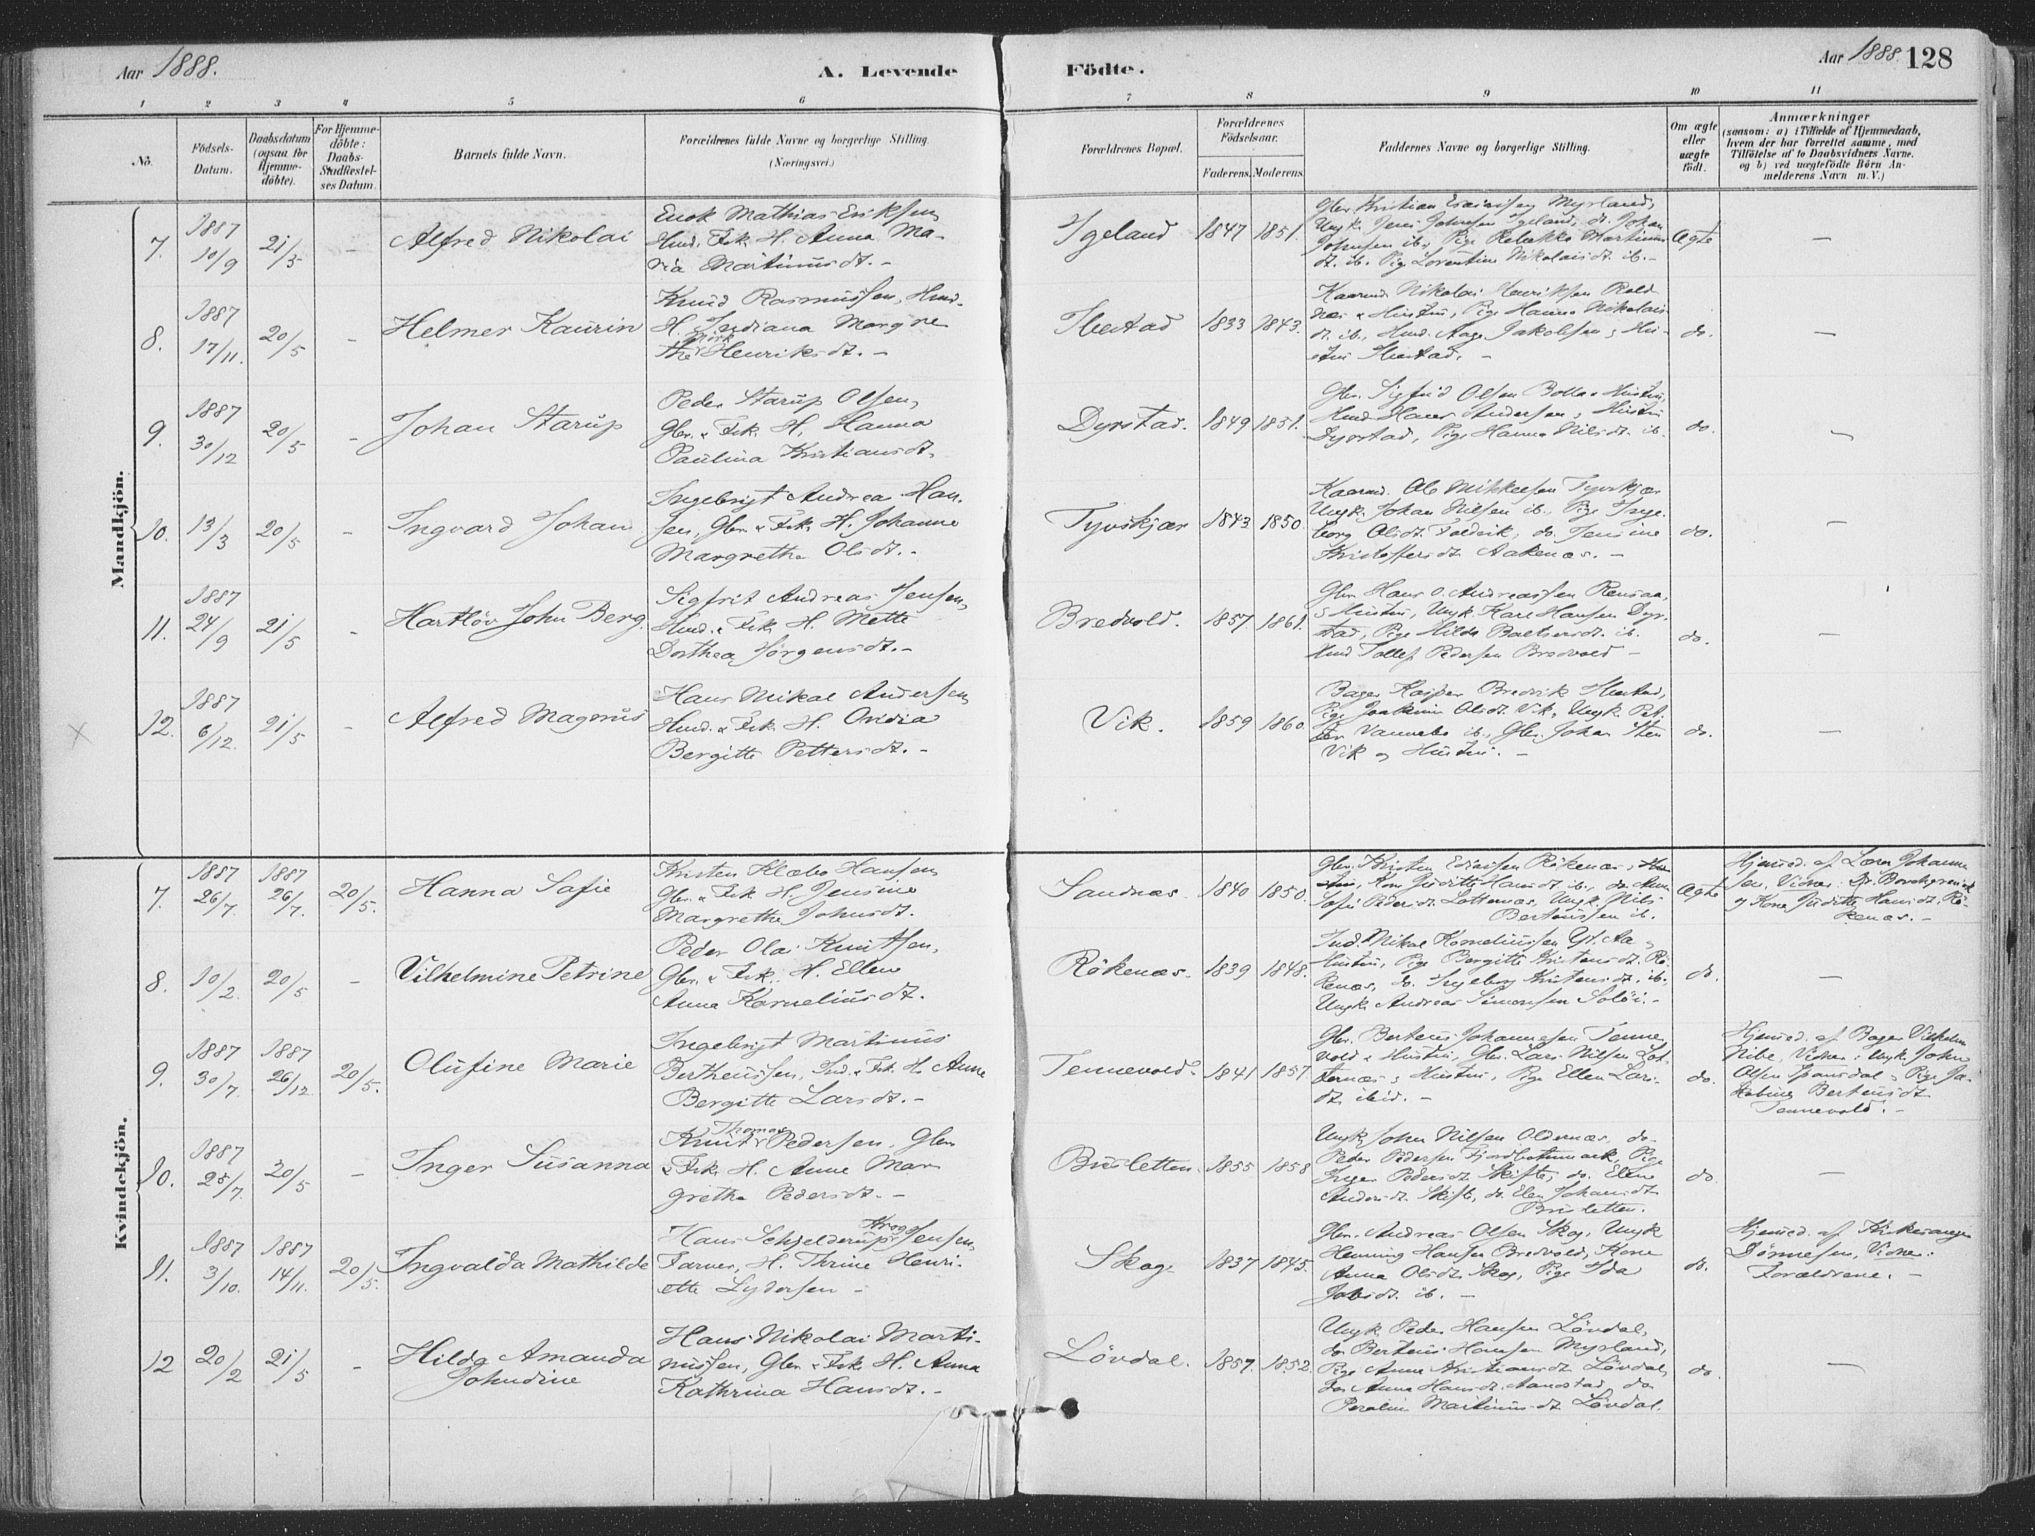 Aar 1888.
A. Levende Födte.
Aar 1888. 128
1 2 3 4 5 6 7 8 9 10 11
No.
Födsels-Datum.
Daabsdatum (ogsaa for Hjemmedöbte).
For Hjemmedöbte: Daabs-Stadfæstelses Datum.
Barnets fulde Navn.
Forældrenes fulde Navne og borgerlige Stilling. (Næringsvei.)
Forældrenes Bopæl.
Forældrenes Födselsaar.
Faderens. Moderens.
Faddernes Navne og borgerlige Stilling.
Om ægte eller uægte födt.
Anmærkninger
(saasom: a) i Tilfælde af Hjemmedaab, hvem der har forrettet samme, med Tilföielse af to Daabsvidners Navne. og b) ved uægtefödte Börn Anmelderens Navn m. V.)
Mandkjön.
7. 1887 10/9 21/5 - Alfred Nikolai
Enok Mathias Eriksen,
Ind. Fisk. H. Anna Ma-
ria Martinusdt. -
Igeland 1847 1851.
Johnsen ib., Pige Rebekka Martinus
dt. ib. Pige Lorentine Nikolaisdt. ib. -
Ægte -
8. 1887 17/11. 20/5 - Helmer Kaurin
Knud Rasmussen, Hmd.
H. Indiana Margre
the Mörk Henriksdt. -
Ibestad 1833 1843.
Kaarmd. Nikolai Henriksen Rold
næs & Hustru, Pige Hanna Nikolais
dt. ib., Hmd. Aage Jakobsen & Hu-
stru Ibestad. -
do. -
9. 1887 30/12 20/5 - Johan Starup
Peder Starup Olsen,
Gbr. & Fisk. H. Hanna
Paulina Kristiansdt.
Dyrstad. 1849 1851.
Gbr. Sigfrid Olsen Bolla & Hustru,
Hmd. Hans Andersen & Hustru
Dyrstad, Pige Hanna Nilsdt. ib.
do. -
10. 13/3 20/5 - Ingvard Johan
Ingebrigt Andreas Han-
sen, Gbr. & Fisk. H. Johanna
Margrethe Olsdt. -
Tyvskjær 1843 1850.
Kaarmd. Ole Mikkelsen Tyvskjær
Ungk. Johan Nilsen ib., Pige Inge-
borg Olsdt. Foldvik, do. Jensine
Kristoffersdt. Aakenæs. -
do. -
11. 1887 24/9 21/5 - Hartlöv John Berg.
Sigfrit Andreas Jensen,
Hmd. & Fisk. H. Mette
Dorthea Jörgensdt. -
Bredvold. 1857 1861.
Gbr. Hans O. Andreassen Rensaa,
& Hustru, Ungk. Karl Hansen Dyr-
stad, Pige Hilda Baltsersdt. ib.
Hmd. Tollef Pedersen Bredvold -
do. -
12. 1887 6/12. 21/5 - Alfred Magnus
Hans Mikal Andersen,
Hmd. & Fisk. H. Ovidia
Bergitte Pettersdt. -
Vik. 1859 1860.
Bager Kasper Bredvik Ibestad,
Pige Joakime Olsdt. Vik, Ungk. Pet-
ter Vannebo ib., Gbr. Johan Sten
Vik og Hustru. -
do. -
Kvindekjön.
7. 1887 26/7. 1887 26/7. 20/5. Hanna Sofie
Kristen Klæbo Hansen
Gbr. & Fisk. H. Jensine
Margrethe Johnsdt.
Sandnæs 1840 1850.
Bertheussen ib.
Ægte
Hjemmed. af Lærer Johanne
sen. Vidner: Dr. Borchgrevink
og Kone Judithe Hansdt. Rö-
kenæs. -
8. 10/2. 20/5 - Vilhelmine Petrine
Peder Olai Knutsen,
Gbr. & Fisk. H. Ellen
Anna Korneliusdt.
Rökenæs. 1839 1848.
Ind. Mikal Korneliussen Yt. Aa &
Hustru, Pige Bergitte Kristensdt. Rö-
kenæs, do. Ingeborg Kristensdt. ib.
Ungk. Andreas Simonsen Solöi. -
do. -
9. 1887 30/7. 1887 26/12 20/5. Olufine Marie
Ingebrigt Martinus
Bertheussen, Ind. & Fisk. H. Anne
Bergitte Larsdt. -
Tennevold. 1841 1857
Gbr. Berteus Johannesen Tenne
vold & Hustru, Gbr. Lars Nilsen Lot-
ternæs & Hustru, Pige Ellen Lars-
dt. ibid. -
do.
Hjemmed. af Bager Vilhelm
Nibe, Vidner: Ungk. John
Olsen Spansdal & Pige Ja-
kobine Berteusdt.
Tennevold. -
10. 1887 25/7. 20/5 - Inger Susanna
Knut Thomas Pedersen, Gbr.
& Fisk. H. Anne Mar
grethe Pedersdt. -
Brusletten 1855 1858
Ungk. John Nilsen Oldernæs, do.
Peder Pedersen Fjordbotnmark, Pige
Inger Pedersdt. Skifte, do. Elene
Andersdt. Skifte, do. Elen Johansdt.
Brusletten.
do. -
11. 1887 3/10. 1887 14/11. 20/5. Ingvalda Mathilde
Hans Schjelderup Krogh Jensen,
Farver, H. Thrine Henri-
ette Lydersen -
Skog 1837 1845.
Gbr. Andreas Olsen Skog, Ungk.
Henning Hansen Bredvold, Kone
Anna Olsdt. Skog, Pige Ida
Jakobsdt. ib. -
do.
Hjemmed. af Kirkesanger
Dönnesen, Vidner:
Forældrene. -
12 20/2 21/5 - Hilda Amanda
Johndine
Hans Nikolai Marti-
nussen, Gbr. & Fisk. H. Anna
Kathrina Hansdt. -
Lövdal. 1857. 1852.
Ungk. Peder Hansen Lövdal,
do. Berteus Hansen Myrland,
Pige Anne Kristiansdt. Lövdal,
do. Anna Hansdt. Aanstad, do.
Peroline Martinusdt. Lövdal.
do. -